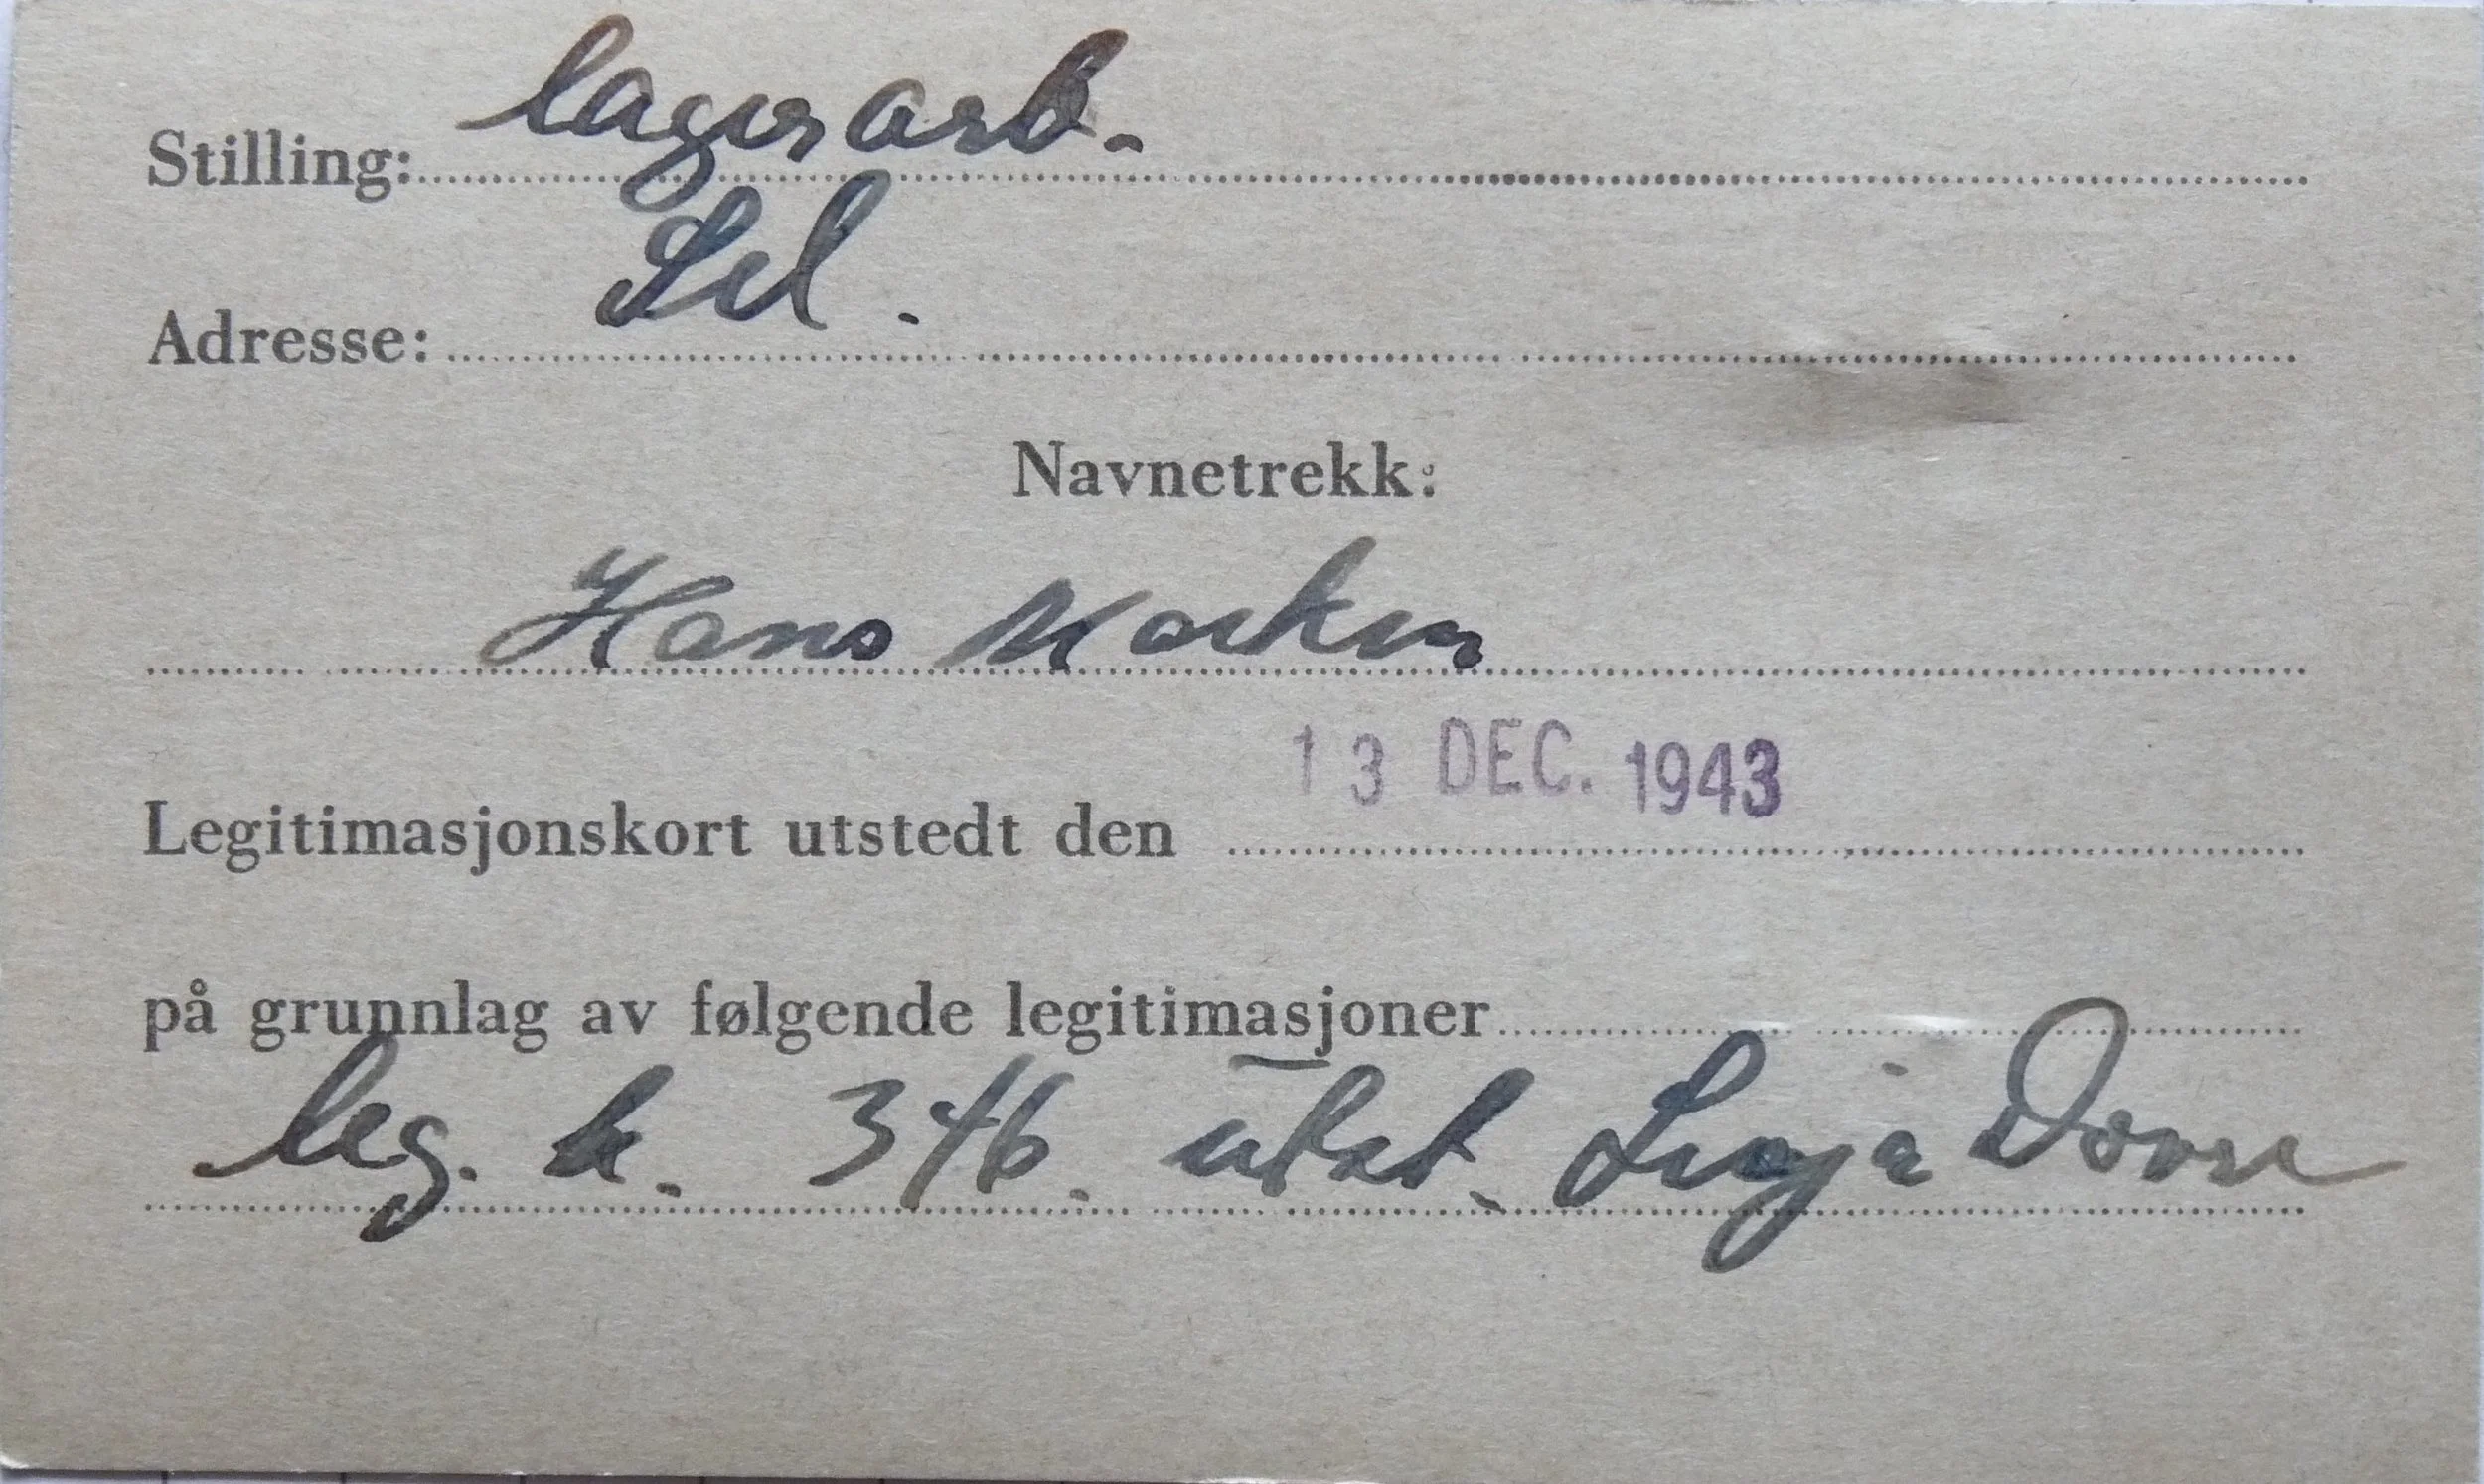 lagerarb.
Stilling:
Sel.
Adresse:
Navnetrekk:
Hans
13 DEC. 1943
Legitimasjonskort utstedt den
på grunnlag av følgende legitimasjoner
leg. k. 346. utst. Dovre